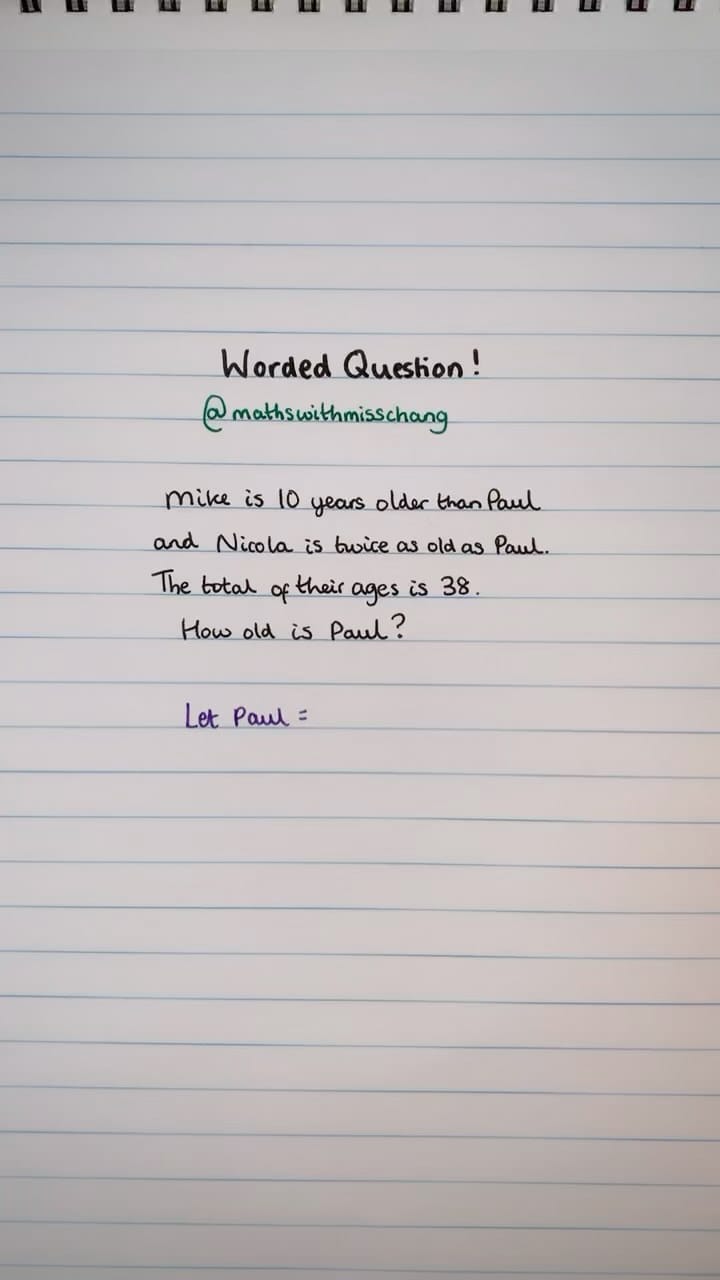 Worded Question!
@mathswithmisschang
Mike is 10 years older than Paul
and Nicola is twice as old as Paul.
The total of their ages is 38.
How old is Paul?
Let Paul =